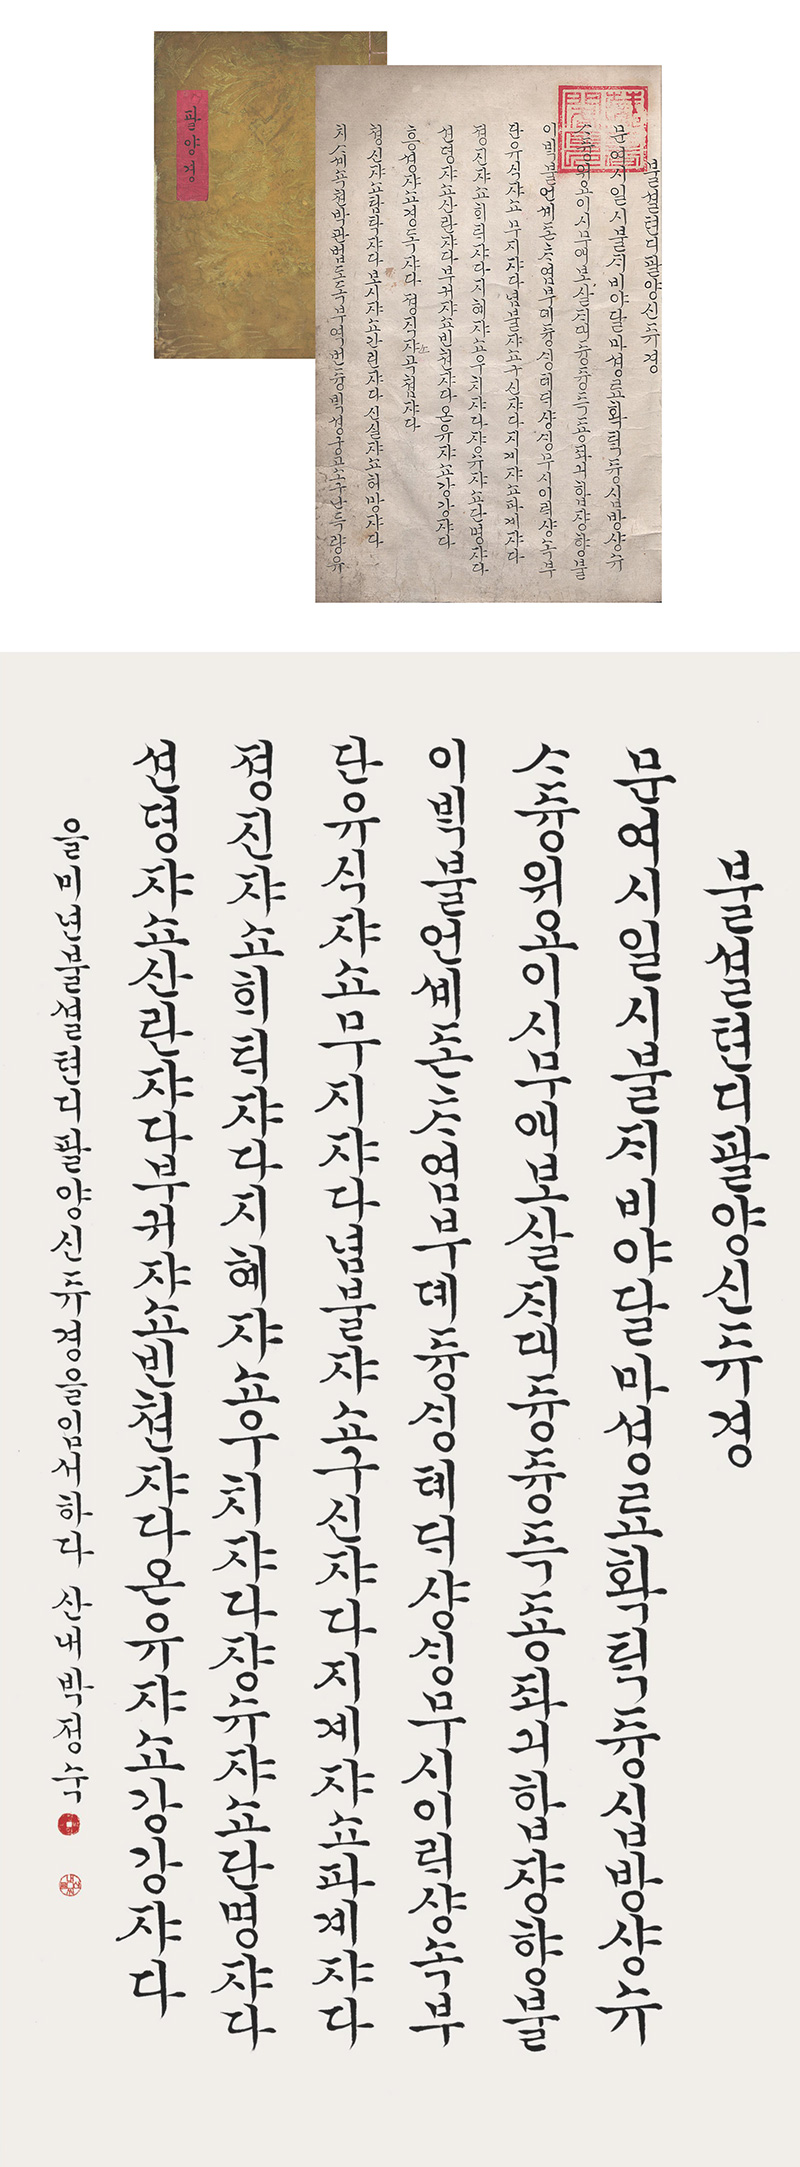 팔양경
불셜텬디팔양신듀경
문여시일시불ᄌᆡ비야달마셩료확ᄐᆡᆨ듕십방샹슈
ᄉᆞ듕위요이시무애보살ᄌᆡ대듕듕득둉좌긔합쟝향불
이ᄇᆡᆨ불언셰존ᄎᆞ염부뎨듕ᄉᆡᆼ톄ᄃᆡ샹ᄉᆡᆼ무시이ᄅᆡ샹쇽부
단유식쟈쇼무지쟈다념불쟈쇼구신쟈다지계쟈쇼파계쟈다
졍진쟈쇼ᄒᆡᄐᆡ쟈다지혜쟈쇼우치쟈다쟝슈쟈쇼단명쟈다
션뎡쟈쇼산란쟈다부귀쟈쇼빈쳔쟈다온유쟈쇼강강쟈다
흥셩쟈쇼경독쟈다 졍직쟈쇼곡쳠쟈다
쳥신쟈쇼탐탁쟈다보시쟈쇼간린쟈다신실쟈쇼허망쟈다
치ᄉᆞ셰쇽쳔박관법도독부역번듕ᄇᆡᆨ셩궁고소구난득량유
불셜텬디팔양신듀경
문여시일시불ᄌᆡ비야달마셩료확ᄐᆡᆨ듕십방샹슈
ᄉᆞ듕위요이시무애보살ᄌᆡ대듕듕득둉좌긔합쟝향불
이ᄇᆡᆨ불언셰존ᄎᆞ염부뎨듕ᄉᆡᆼ톄ᄃᆡ샹ᄉᆡᆼ무시이ᄅᆡ샹쇽부
단유식쟈쇼무지쟈다념불쟈쇼구신쟈다지계쟈쇼파계쟈다
졍진쟈쇼ᄒᆡᄐᆡ쟈다지혜쟈쇼우치쟈다쟝슈쟈쇼단명쟈다
션뎡쟈쇼산란쟈다부귀쟈쇼빈쳔쟈다온유쟈쇼강강쟈다
을미년불셜텬디팔양신듀경을임서하다 산내박정숙